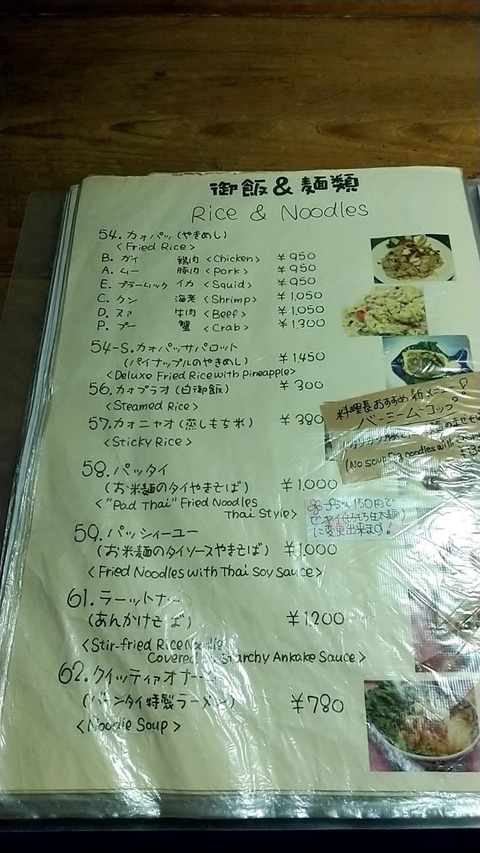 御飯&麺類
Rice & Noodles
54. カオパッ(やきめし)
<Fried Rice>
B. ガイ 鶏肉 <Chicken> ¥950
A. ムー 豚肉 <Pork> ¥950
E. プラームック イカ <Squid> ¥950
C. クン 海老 <Shrimp> ¥1,050
D. ヌア 牛肉 <Beef> ¥1,050
P. プー 蟹 <Crab> ¥1,300
54-S. カオパッサパロット
(パイナップルのやきめし) ¥1450
<Deluxe Fried Rice with pineapple>
56. カオプラオ(白御飯) ¥300
<Steamed Rice>
57. カオニャオ(蒸しもち米) ¥380
<Sticky Rice>
料理長おすすめ 新メニュー
バーミームーコップ
(No soup egg noodles with
58. パッタイ
(お米麺のタイやきそば) ¥1,000
<"Pad Thai" Fried Noodles
Thai Style>
プラス150円で
に変更出来ます!
59. パッシィーユー
(お米麺のタイソースやきそば) ¥1,000
<Fried Noodles with Thai Soy Sauce>
61. ラートナー
(あんかけそば) ¥1,200
<Stir-fried Rice Noodle
Covered Starchy Ankake Sauce>
62. クイッティアオナーム
(バーンタイ特製ラーメン) ¥780
<Noodle Soup>